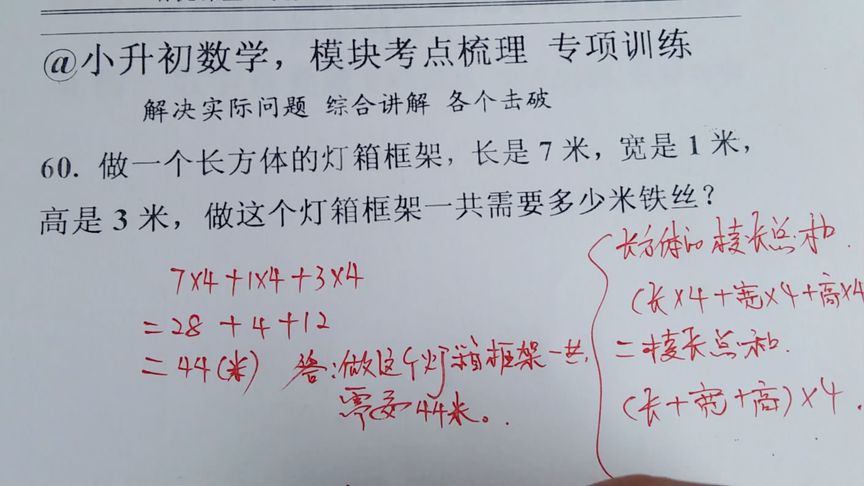 @小升初数学，模块考点梳理 专项训练
解决实际问题 综合讲解 各个击破
60. 做一个长方体的灯箱框架，长是 7 米，宽是 1 米，
高是 3 米，做这个灯箱框架一共需要多少米铁丝？
7×4+1×4+3×4
=28+4+12
=44(米) 答:做这个灯箱框架一共,
需要44米。
长方体的棱长总和.
(长×4+宽×4+高×4
=棱长总和.
(长+宽+高)×4.